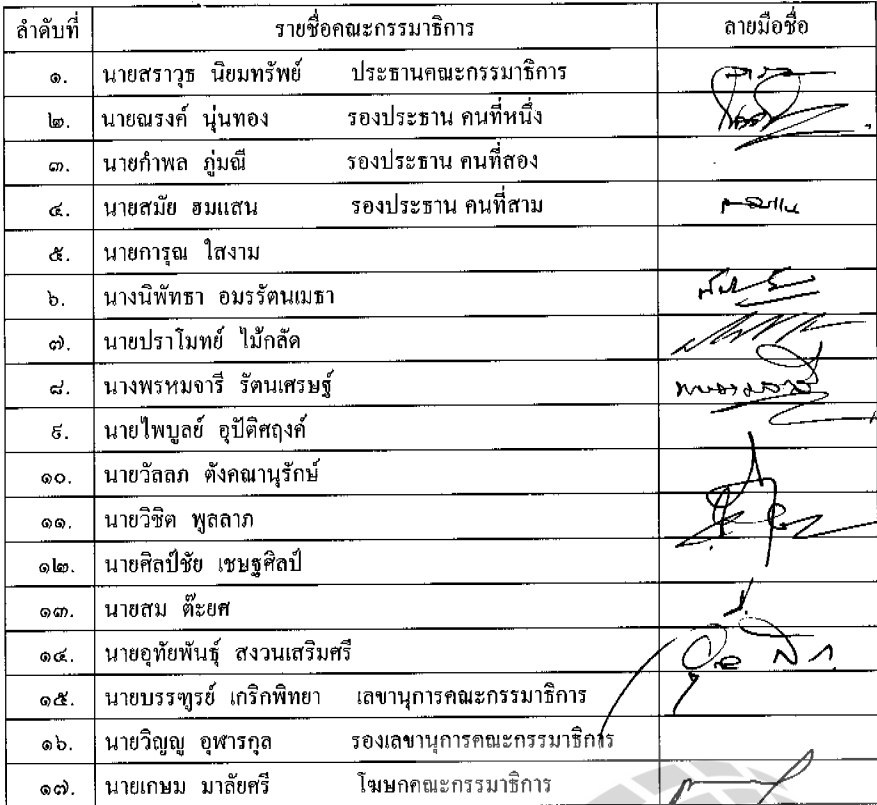 ลำดับที่ รายชื่อคณะกรรมาธิการ ลายมือชื่อ
๑. นายสราวุธ นิยมทรัพย์ ประธานคณะกรรมาธิการ
๒. นายณรงค์ นุ่นทอง รองประธาน คนที่หนึ่ง
๓. นายกำพล ภู่มณี รองประธาน คนที่สอง
๔. นายสมัย ฮมแสน รองประธาน คนที่สาม
๕. นายการุณ ใสงาม
๖. นางนิพัทธา อมรรัตนเมธา
๗. นายปราโมทย์ ไม้กลัด
๘. นางพรหมจารี รัตนเศรษฐ์
๙. นายไพบูลย์ อุปัติศฤงค์
๑๐. นายวัลลภ ตังคณานุรักษ์
๑๑. นายวิชิต พูลลาภ
๑๒. นายศิลป์ชัย เชษฐศิลป์
๑๓. นายสม ต๊ะยศ
๑๔. นายอุทัยพันธุ์ สงวนเสริมศรี
๑๕. นายบรรฑูรย์ เกริกพิทยา เลขานุการคณะกรรมาธิการ
๑๖. นายวิญญู อุฬารกุล รองเลขานุการคณะกรรมาธิการ
๑๗. นายเกษม มาลัยศรี โฆษกคณะกรรมาธิการ